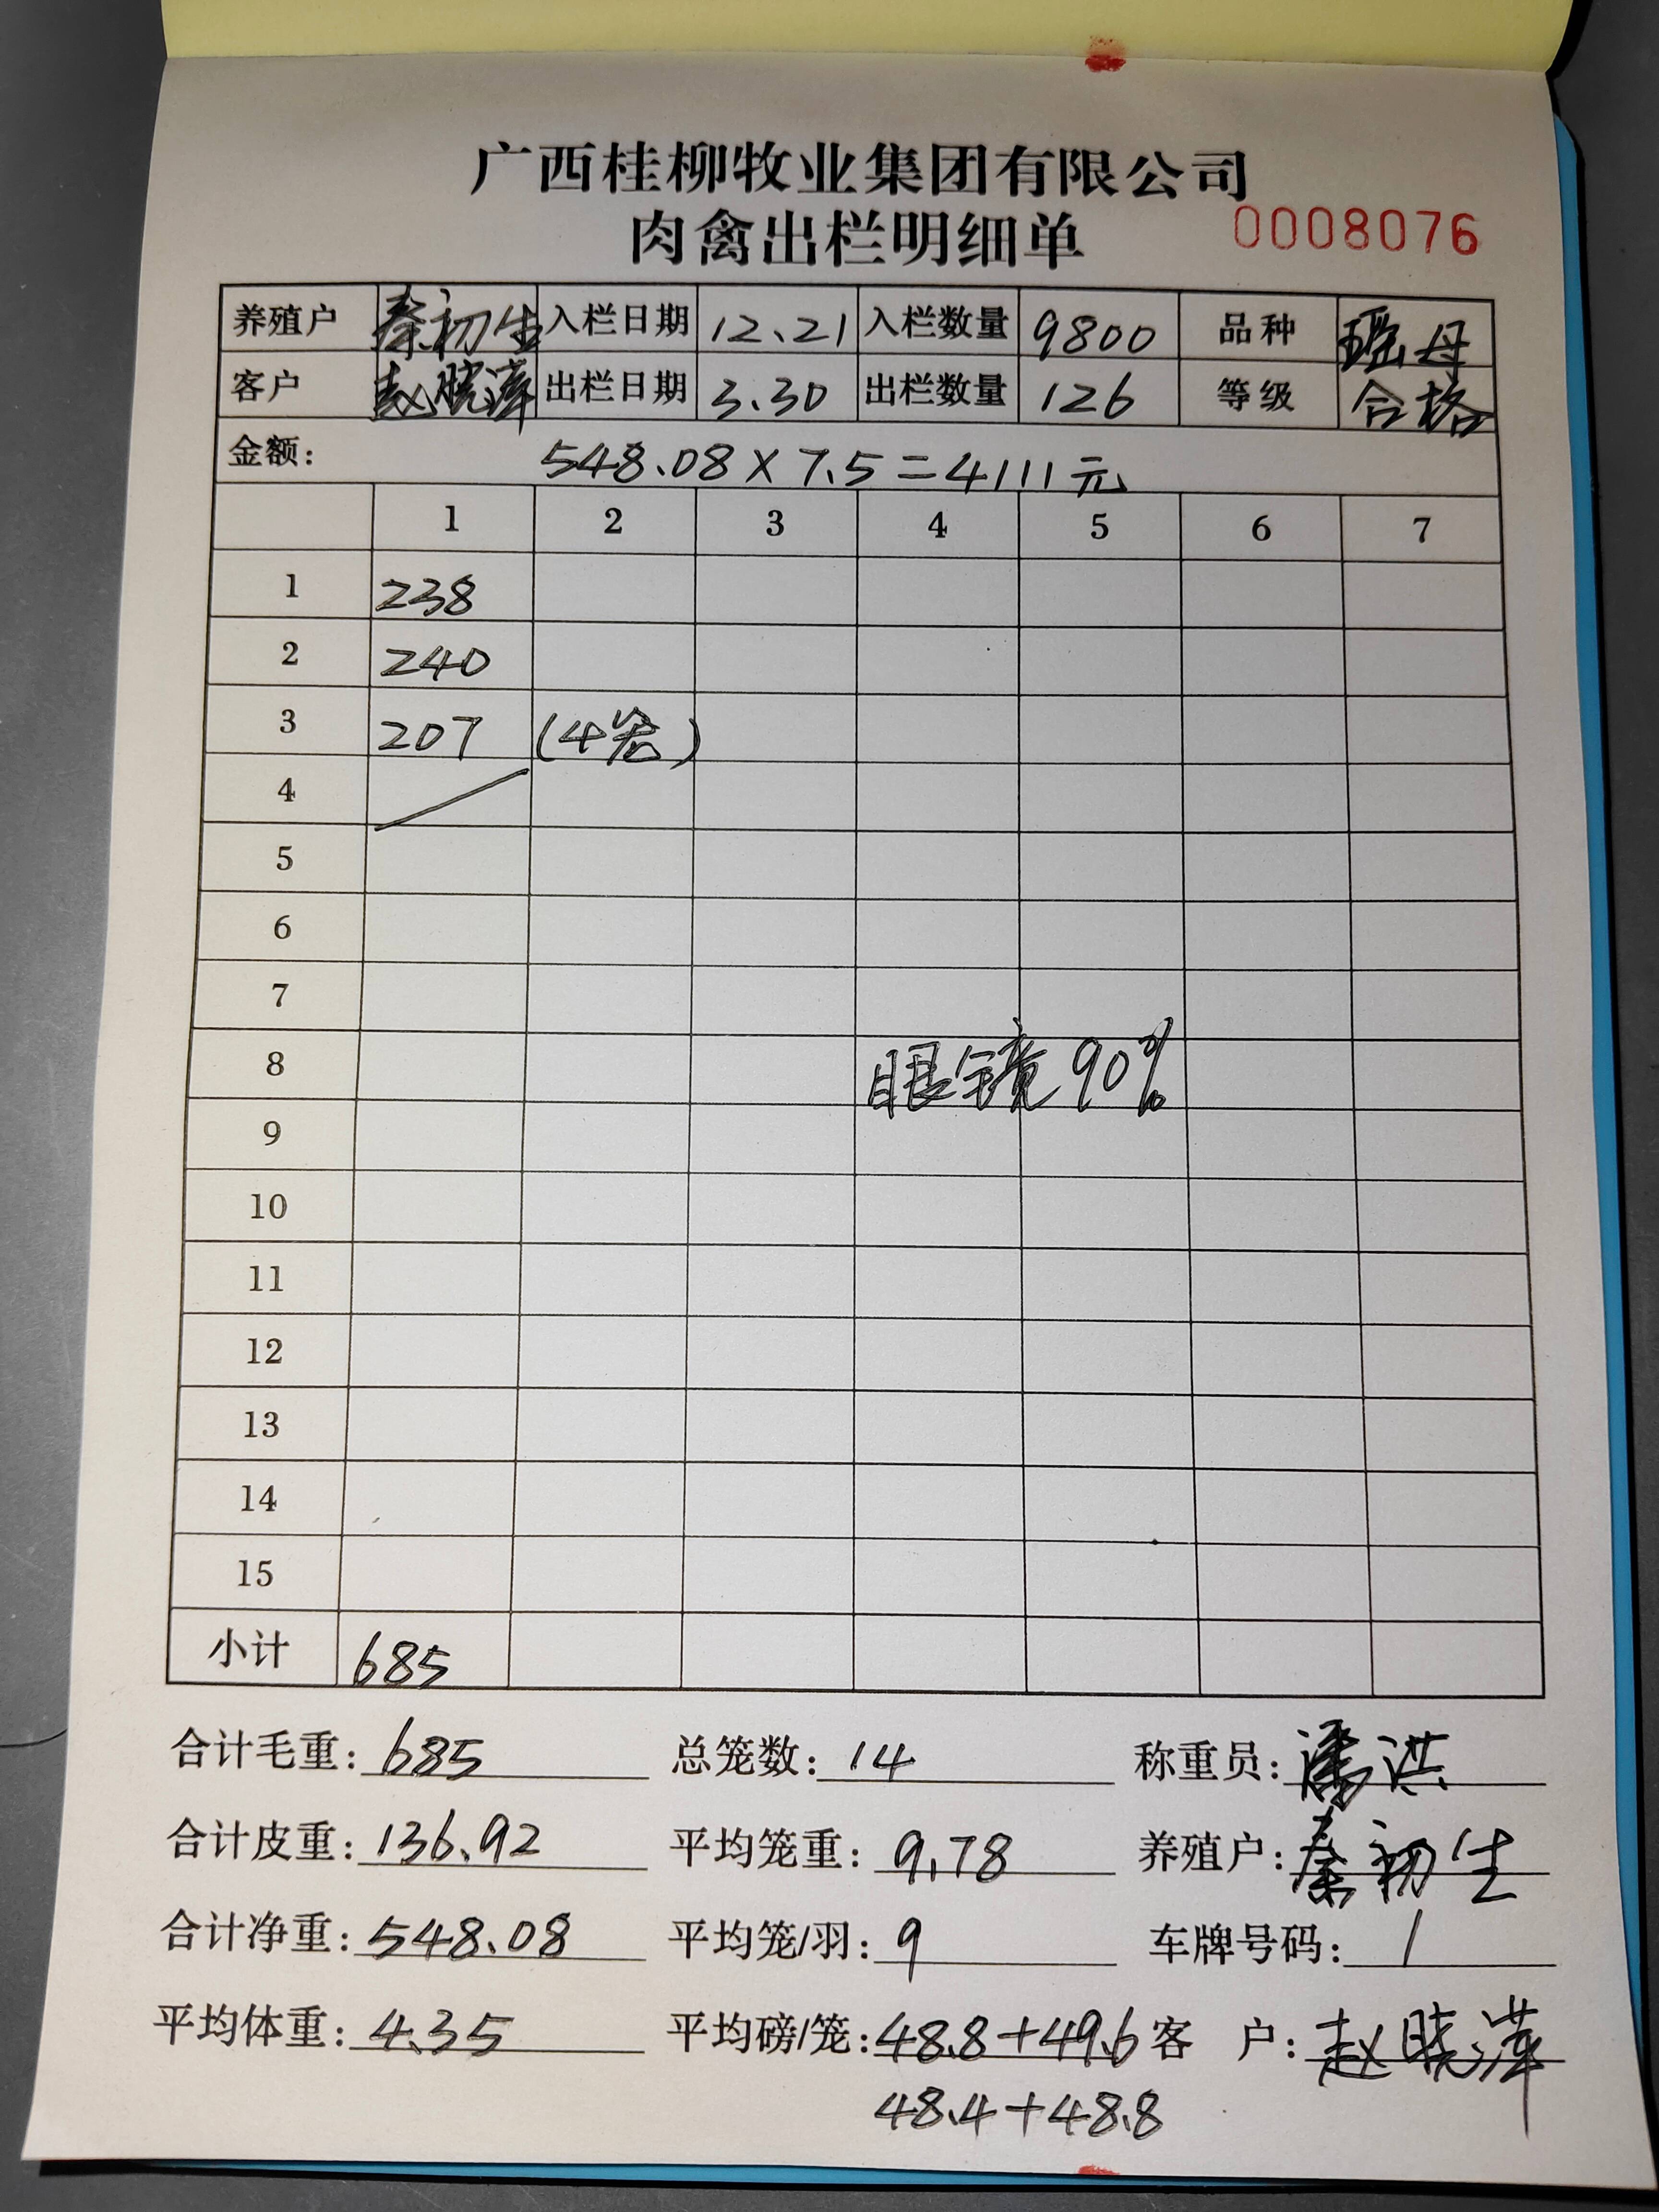 广西桂柳牧业集团有限公司
肉禽出栏明细单 0008076
养殖户 秦初生 入栏日期 12.21 入栏数量 9800 品种 瑶母
客户 赵晓萍 出栏日期 3.30 出栏数量 126 等级 合格
金额: 548.08×7.5=4111元
1 2 3 4 5 6 7
1 238
2 240
3 207 (4笼)
4
5
6
7
8 眼镜90%
9
10
11
12
13
14
15
小计 685
合计毛重: 685 总笼数: 14 称重员: 潘洪
合计皮重: 136.92 平均笼重: 9.78 养殖户: 秦初生
合计净重: 548.08 平均笼/羽: 9 车牌号码: /
平均体重: 4.35 平均磅/笼: 48.8+49.6 客 户: 赵晓萍
48.4+48.8